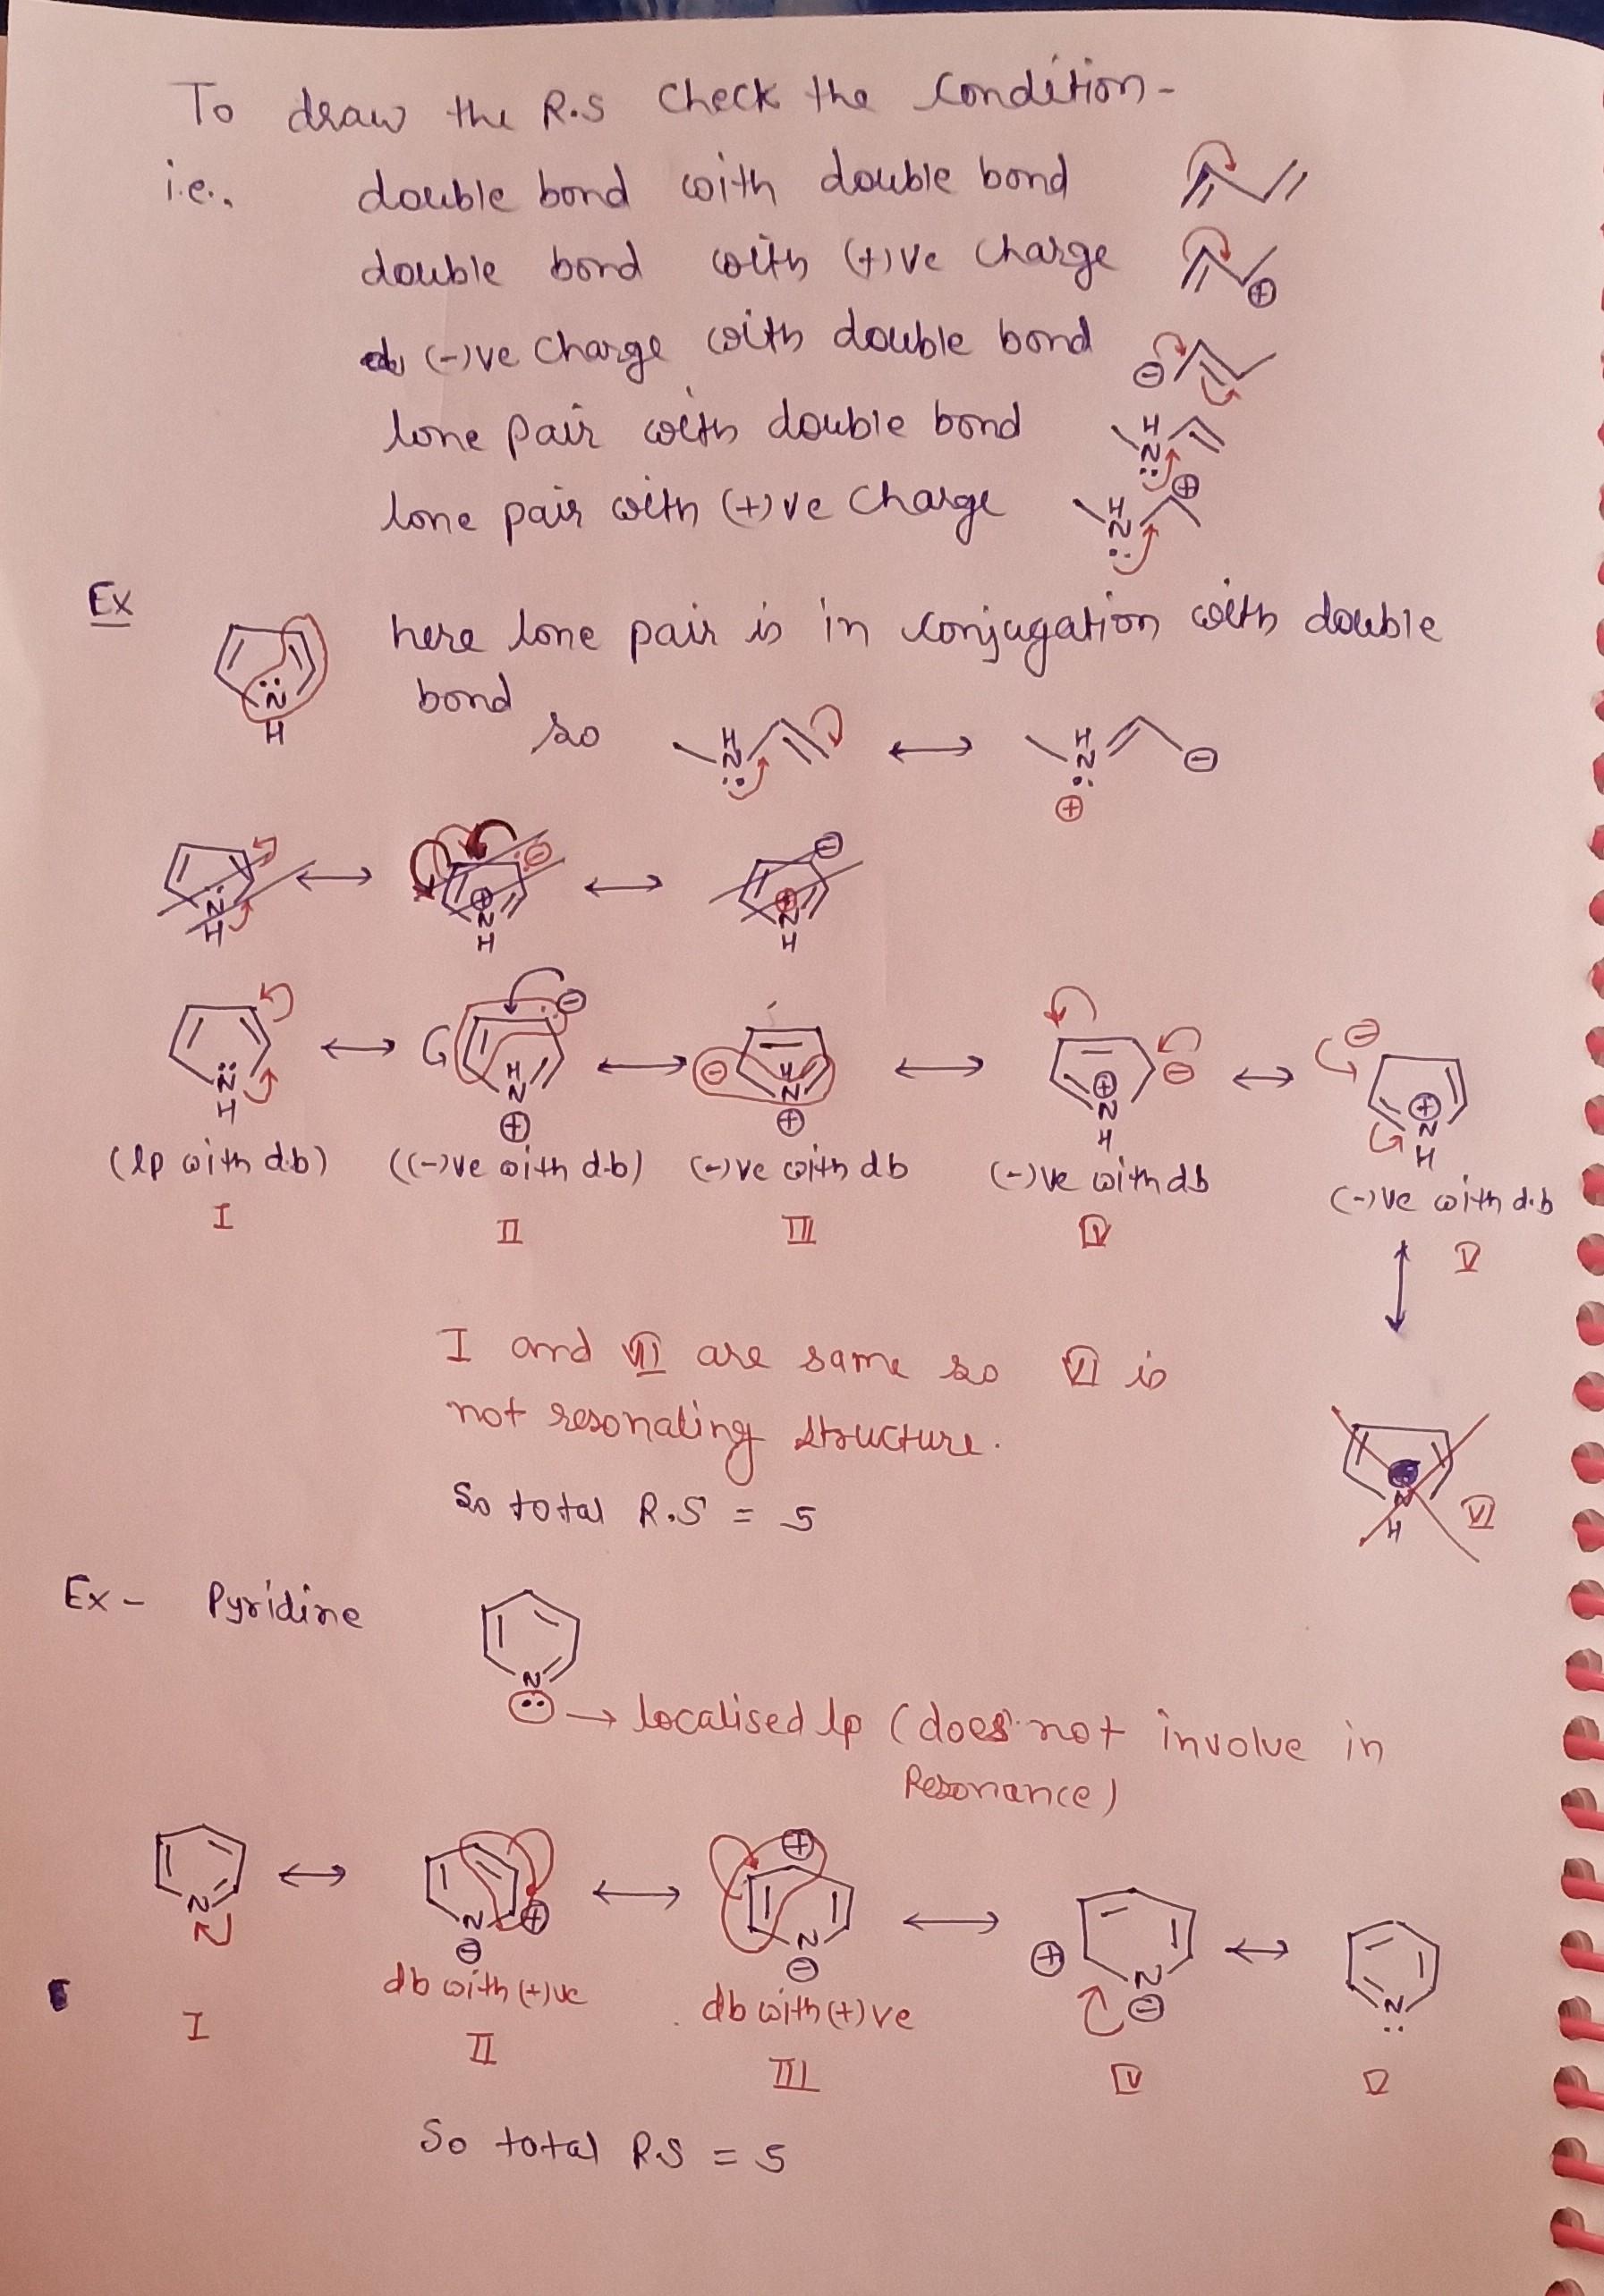 To draw the R.S Check the Condition-
i.e., double bond with double bond
double bond with (+)ve charge
⊕
(-)ve Charge with double bond
⊖
lone pair with double bond
H
N
lone pair with (+)ve Charge
⊕
H
N
Ex
here lone pair is in conjugation with double
bond
N
H
so
H
N
H
N
⊖
⊕
⊖ ⊖
N ⊕ ⊕
H N N
H H
⊖ ⊖
N H ⊖ H ⊕ ⊖ ⊕
H N N N N
⊕ ⊕ H H
(lp with d.b) ((-)ve with d.b) (-)ve with db (-)ve with db (-)ve with d.b
I II III IV V
I and VI are same so VI is
not resonating structure.
So total R.S = 5
N
H
VI
Ex - Pyridine
N
→ localised lp (does not involve in
Resonance)
⊕
N N ⊕ N ⊕ N N
⊖ ⊖ ⊖
db with (+)ve db with (+)ve
I II III IV V
So total R.S = 5